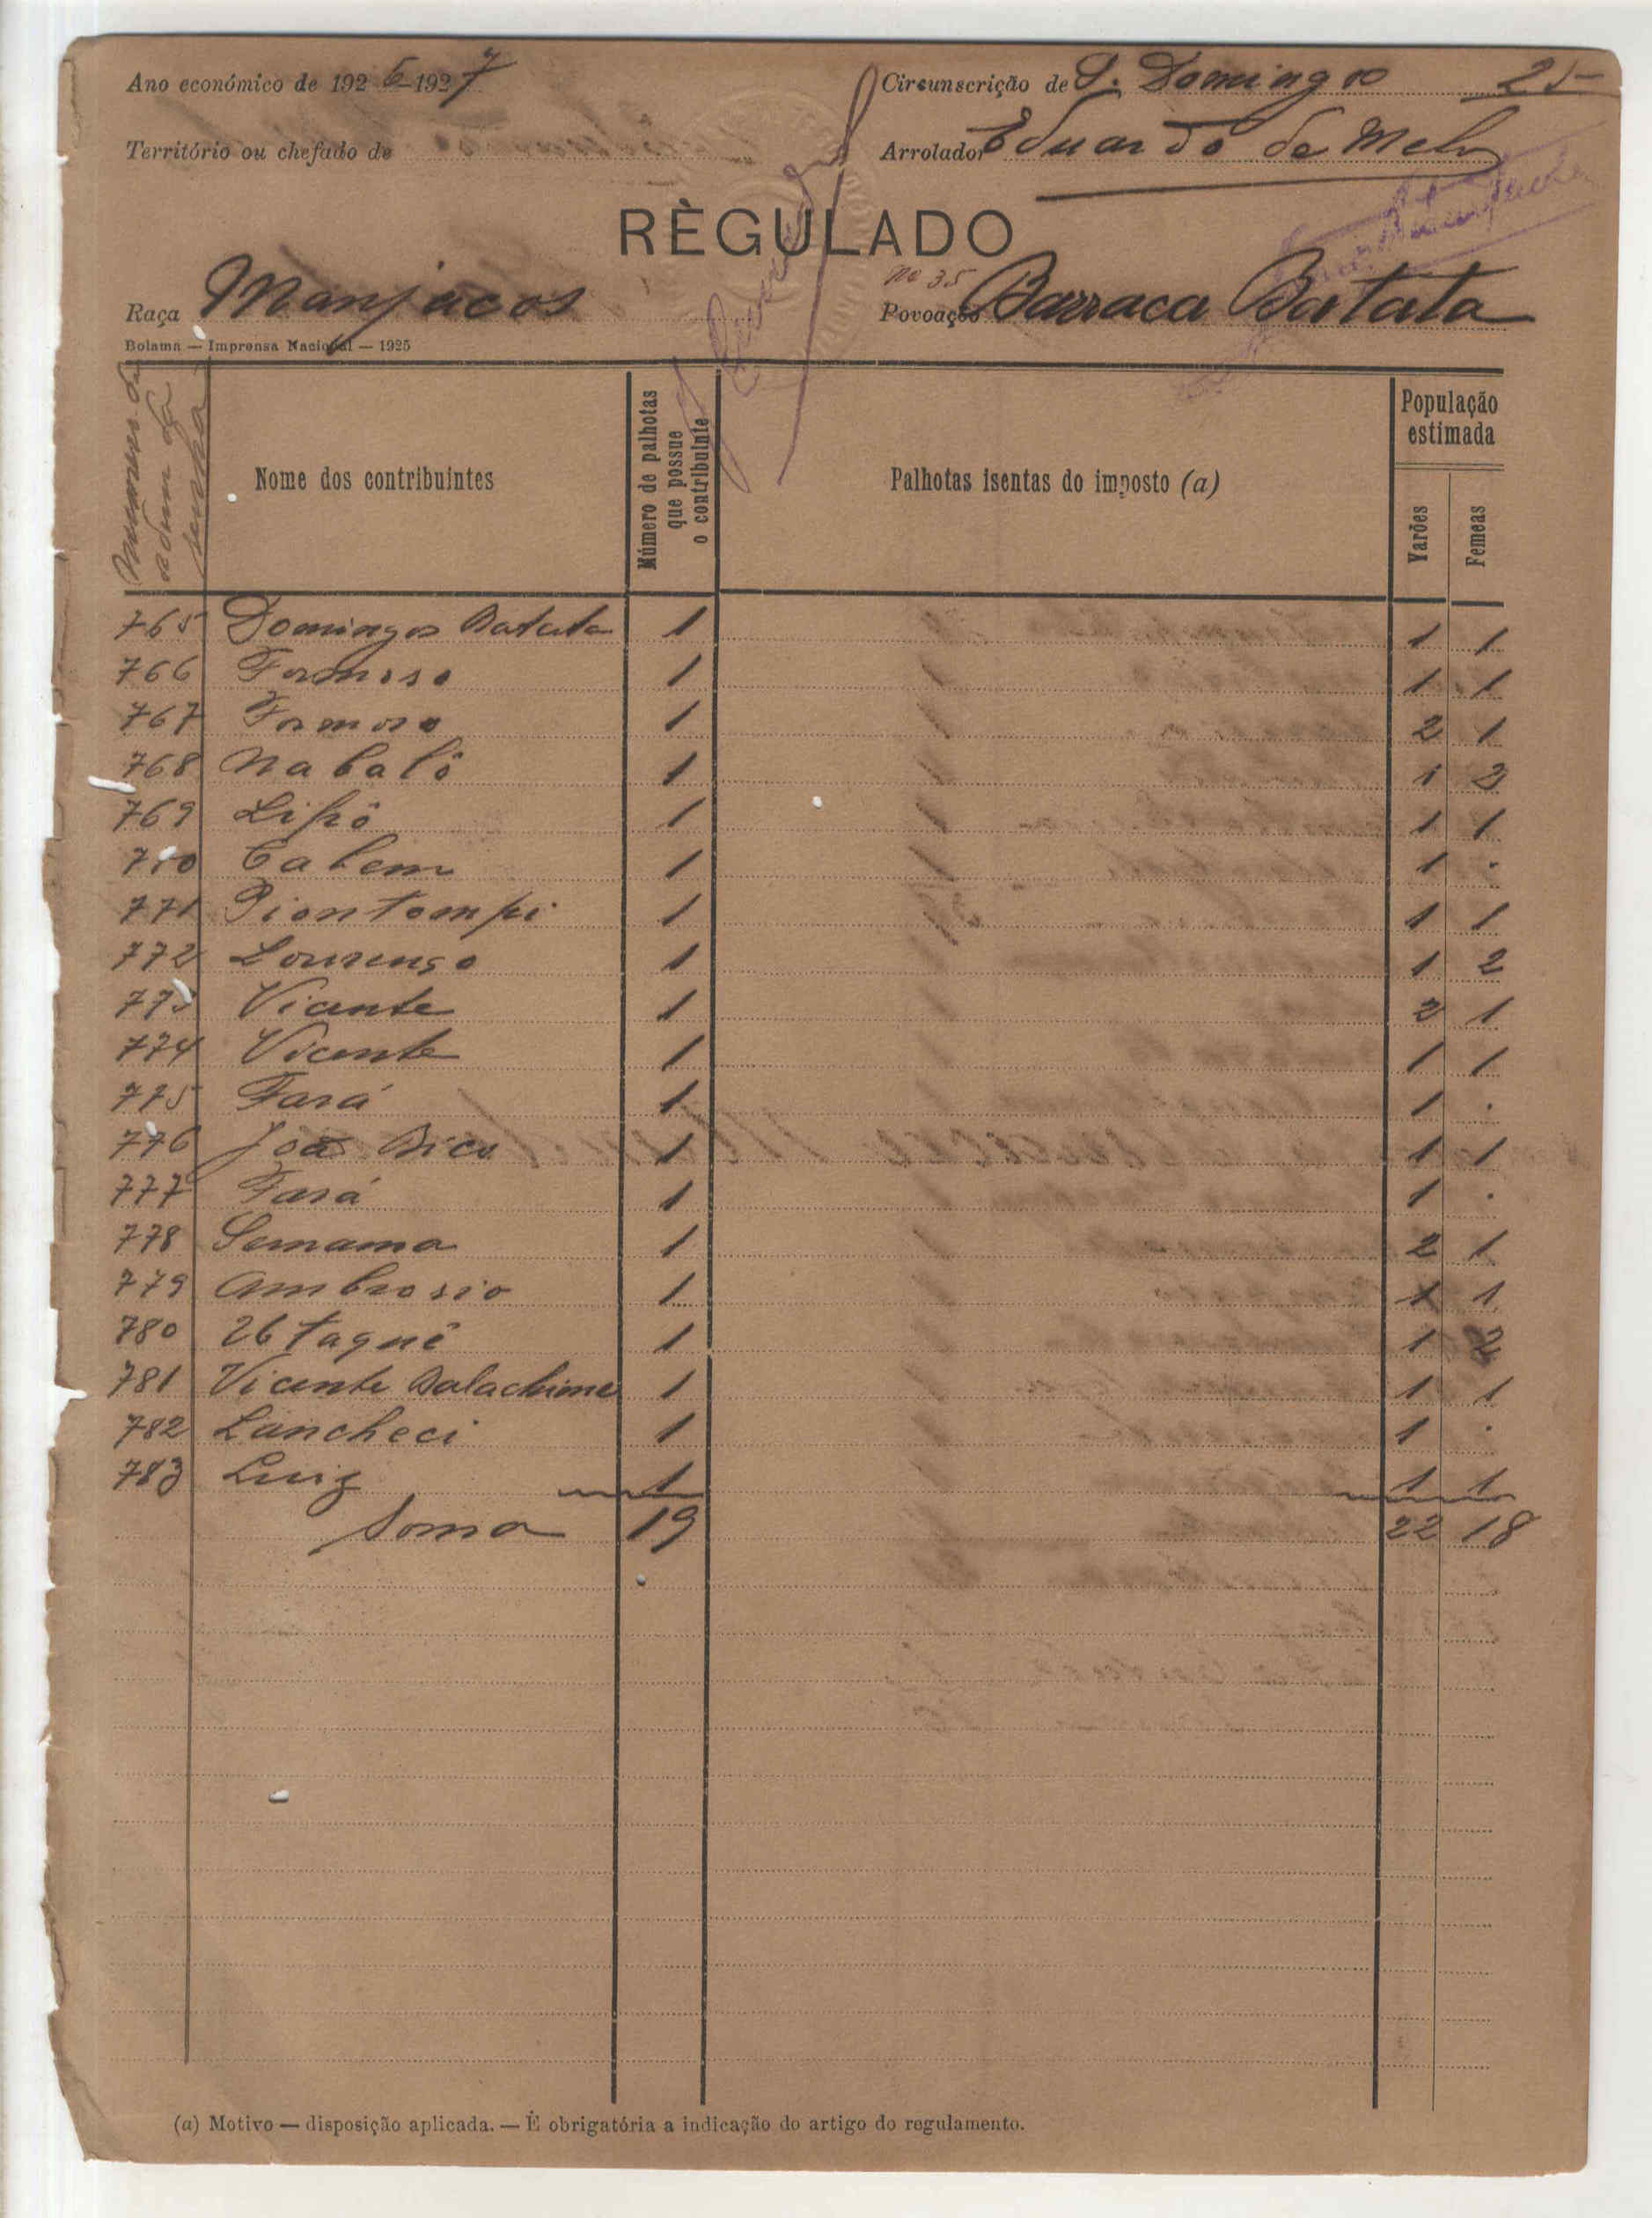 Ano económico de 1926-1927
Circunscrição de S. Domingos 25
Território ou chefado de
Arrolador Eduardo de Melo
RÈGULADO
No 35
Raça Manjacos
Povoação Barraca Batata
Bolama — Imprensa Nacional — 1925
Numero de
senha
Nome dos contribuintes
Número de palhotas que possue o contribuinte
Palhotas isentas do imposto (a)
População estimada
Varões
Femeas
765 Domingos Batata 1 1 1
766 Formoso 1 1 1
767 Formoso 1 2 1
768 Nabalô 1 1 2
769 Lipô 1 1 1
770 Cabem 1 1 .
771 Piontompi 1 1 1
772 Lourenço 1 1 2
773 Vicente 1 2 1
774 Vicente 1 1 1
775 Fará 1 1 .
776 João Bico 1 1 1
777 Fará 1 1 .
778 Semama 1 2 1
779 Ambrosio 1 1 1
780 1 1 2
781 Vicente Balachime 1 1 1
782 Lancheci 1 1 .
783 Luiz 1 1 1
Soma 19 22 18
(a) Motivo — disposição aplicada. — É obrigatória a indicação do artigo do regulamento.